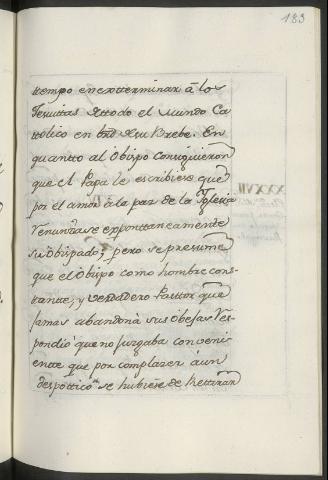 183
tiempo en extterminar â los
Jesuitas de ttodo el Mundo Ca
ttolico en bird de su Brebe. En
quantto al Obispo consiguieron
que el Papa le escribiese que
por el amor â la paz de la Iglesia
renunciase exponttaneamente
su Obispado; pero se presume
que el Obispo como hombre cons-
ttantte, y verdadero Pasttor que
jamas abandonà sus obejas res-
pondió que no jurgaba conveni
entte que por complazer á un
despottico se hubiese de Rettirar